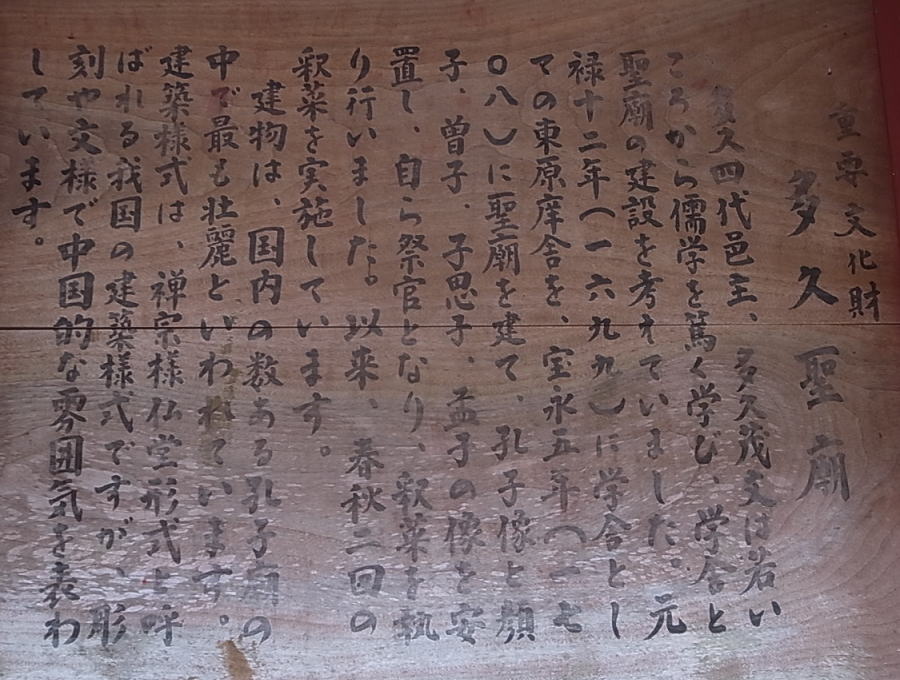 重要文化財
多久聖廟
多久四代邑主、多久茂文は若い
ころから儒学を篤く学び、学舎と
聖廟の建設を考えていました。元
禄十二年（一六九九）に学舎とし
ての東原庠舎を、宝永五年（一七
〇八）に聖廟を建て、孔子像と顔
子、曽子、子思子、孟子の像を安
置し、自ら祭官となり、釈菜を執
り行いました。以来、春秋二回の
釈菜を実施しています。
建物は、国内の数ある孔子廟の
中で最も壮麗といわれています。
建築様式は、禅宗様仏堂形式と呼
ばれる我国の建築様式ですが、彫
刻や文様で中国的な雰囲気を表わ
しています。